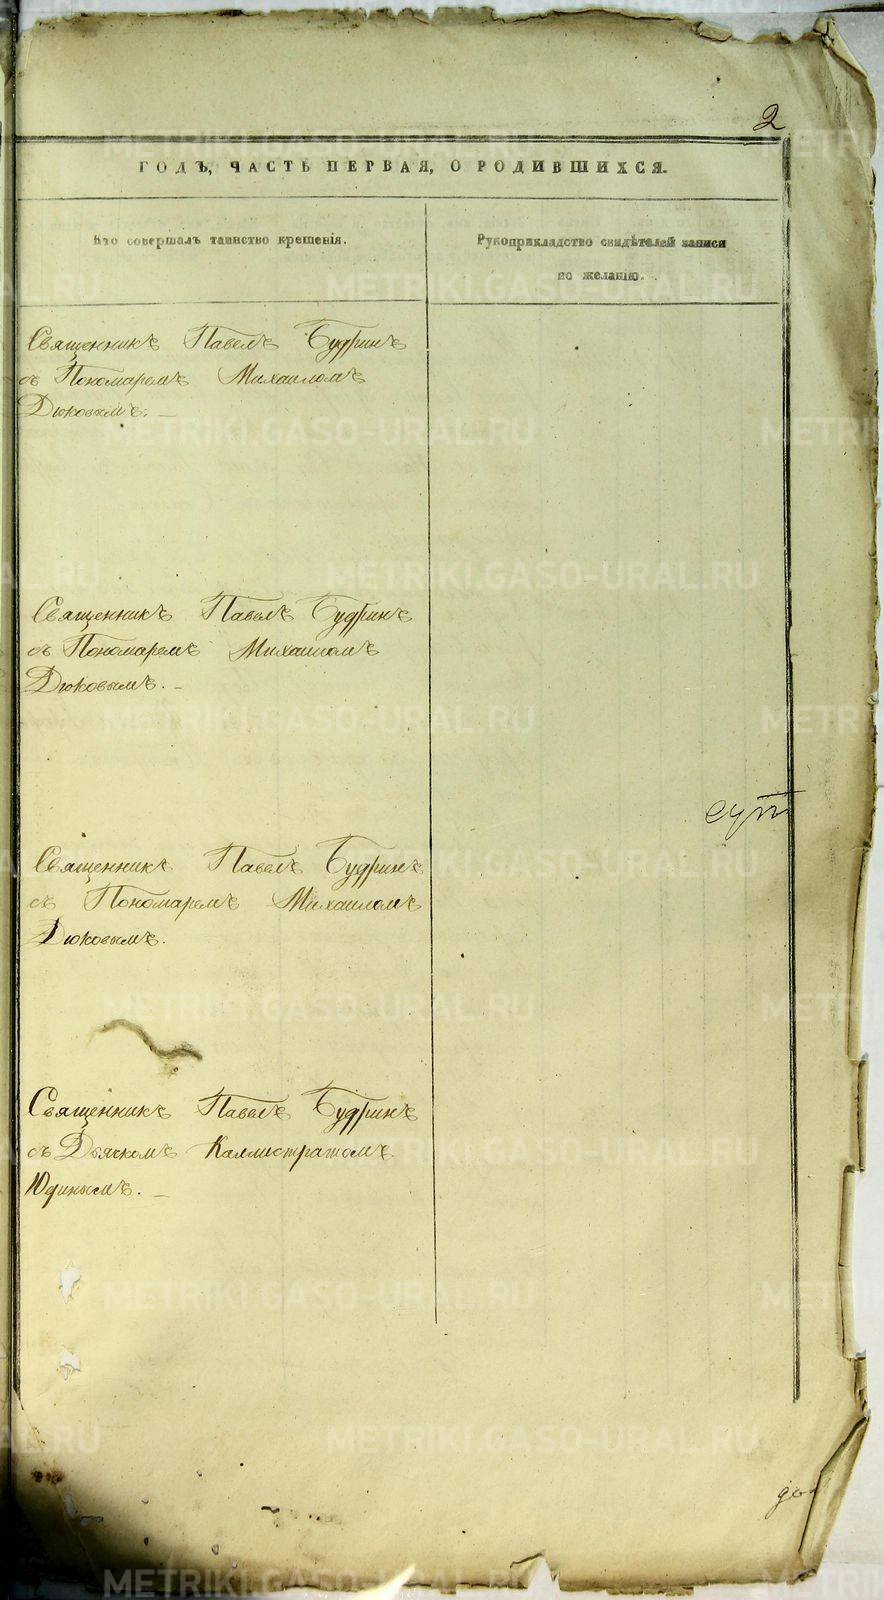 2
ГОДЪ, ЧАСТЬ ПЕРВАЯ, О РОДИВШИХСЯ.
Кто совершалъ таинство крещенія.
Рукоприкладство свидѣтелей записи
по желанію.
Священникъ Павелъ Будринъ
съ Пономаремъ Михаиломъ
Дюковымъ. –
Священникъ Павелъ Будринъ
съ Пономаремъ Михаиломъ
Дюковымъ. –
Священникъ Павелъ Будринъ
съ Пономаремъ Михаиломъ
Дюковымъ.
Священникъ Павелъ Будринъ
съ Дьячкомъ Каллистратомъ
Юдинымъ. –
METRIKI.GASO-URAL.RU